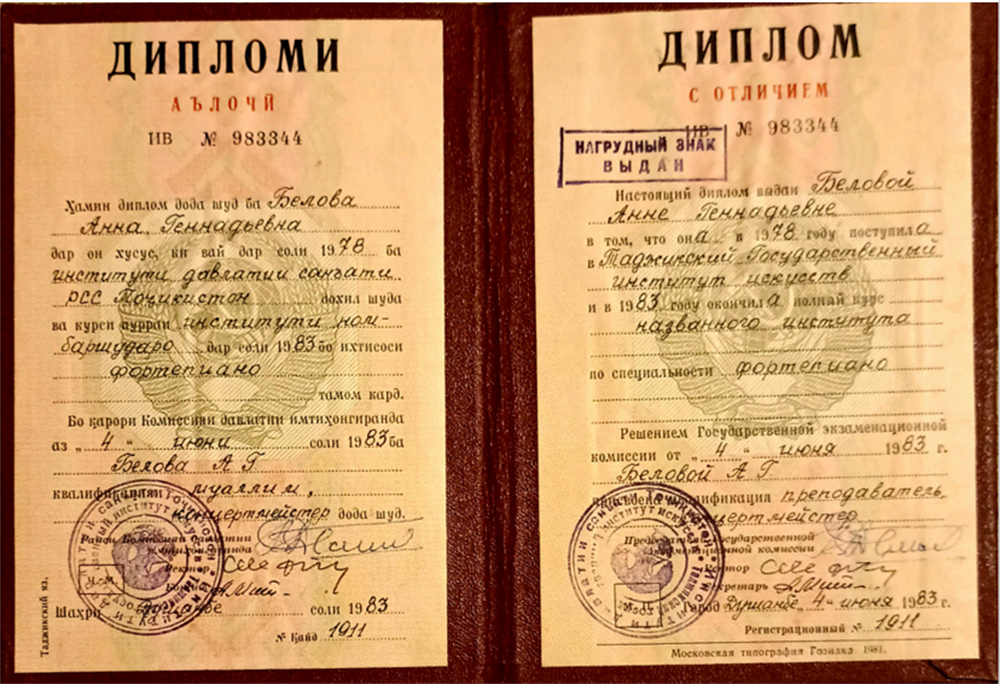 ДИПЛОМИ
АЪЛОЧӢ
ИВ № 983344
Ҳамин диплом дода шуд ба Белова
Анна Геннадьевна
дар он хусус, ки вай дар соли 1978 ба
институти давлатии санъати
РСС Тоҷикистон дохил шуда
ва курси пурраи институти ном-
баршударо дар соли 1983 бо ихтисоси
фортепиано
тамом кард.
Бо қарори Комиссияи давлатии имтиҳонгиранда
аз „4“ июни соли 1983 ба
Белова А Г
квалификацияи муаллим,
концертмейстер дода шуд.
Раиси Комиссияи давлатии
имтиҳонгиранда
Ректор
Шаҳри Душанбе соли 1983
№ қайд 1911
Таджикский яз.
ДИПЛОМ
С ОТЛИЧИЕМ
ИВ № 983344
НАГРУДНЫЙ ЗНАК
ВЫДАН
Настоящий диплом выдан Беловой
Анне Геннадьевне
в том, что она в 1978 году поступила
в Таджикский Государственный
институт искусств
и в 1983 году окончила полный курс
названного института
по специальности фортепиано
Решением Государственной экзаменационной
комиссии от „4“ июня 1983 г.
Беловой А Г
присвоена квалификация преподаватель,
концертмейстер
Председатель Государственной
экзаменационной комиссии
Ректор
Секретарь
Город Душанбе „4“ июня 1983 г.
Регистрационный № 1911
Московская типография Гознака. 1981.